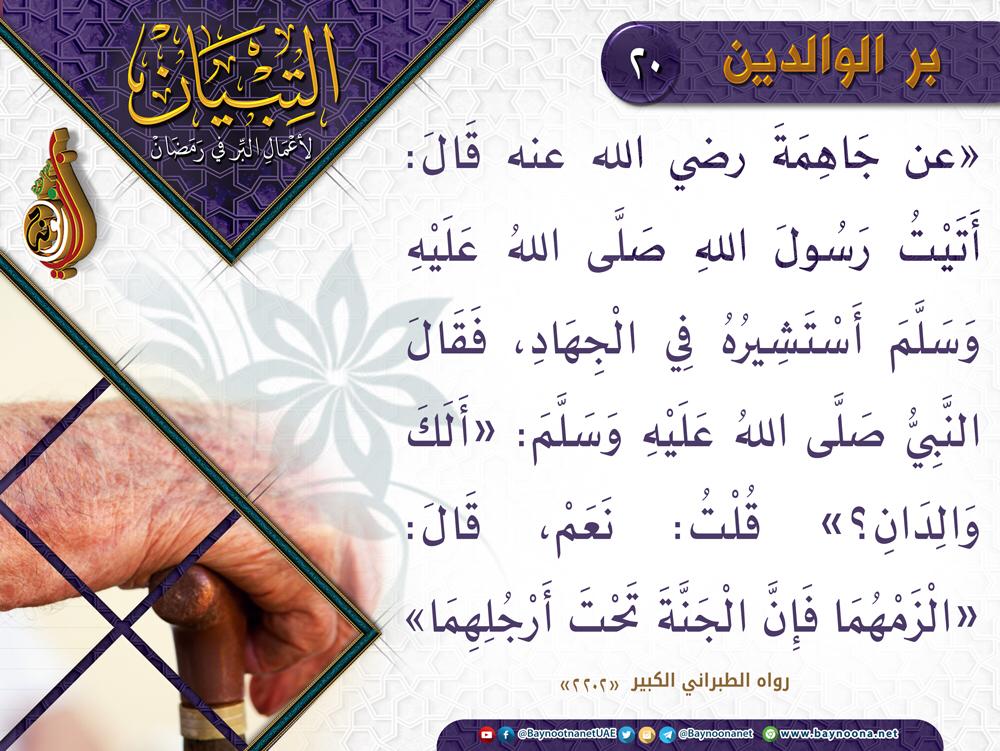 التِّبْيَان
لأَعْمَالِ البِّر في رَمَضَانْ
بر الوالدين
٢٠
«عن جَاهِمَةَ رضي الله عنه قَالَ:
أَتَيْتُ رَسُولَ اللهِ صَلَّى اللهُ عَلَيْهِ
وَسَلَّمَ أَسْتَشِيرُهُ فِي الْجِهَادِ، فَقَالَ
النَّبِيُّ صَلَّى اللهُ عَلَيْهِ وَسَلَّمَ: «أَلَكَ
وَالِدَانِ؟» قُلْتُ: نَعَمْ، قَالَ:
«الْزَمْهُمَا فَإِنَّ الْجَنَّةَ تَحْتَ أَرْجُلِهِمَا»
رواه الطبراني الكبير «٢٢٠٢»
@BaynootnanetUAE @Baynoonanet www.baynoona.net